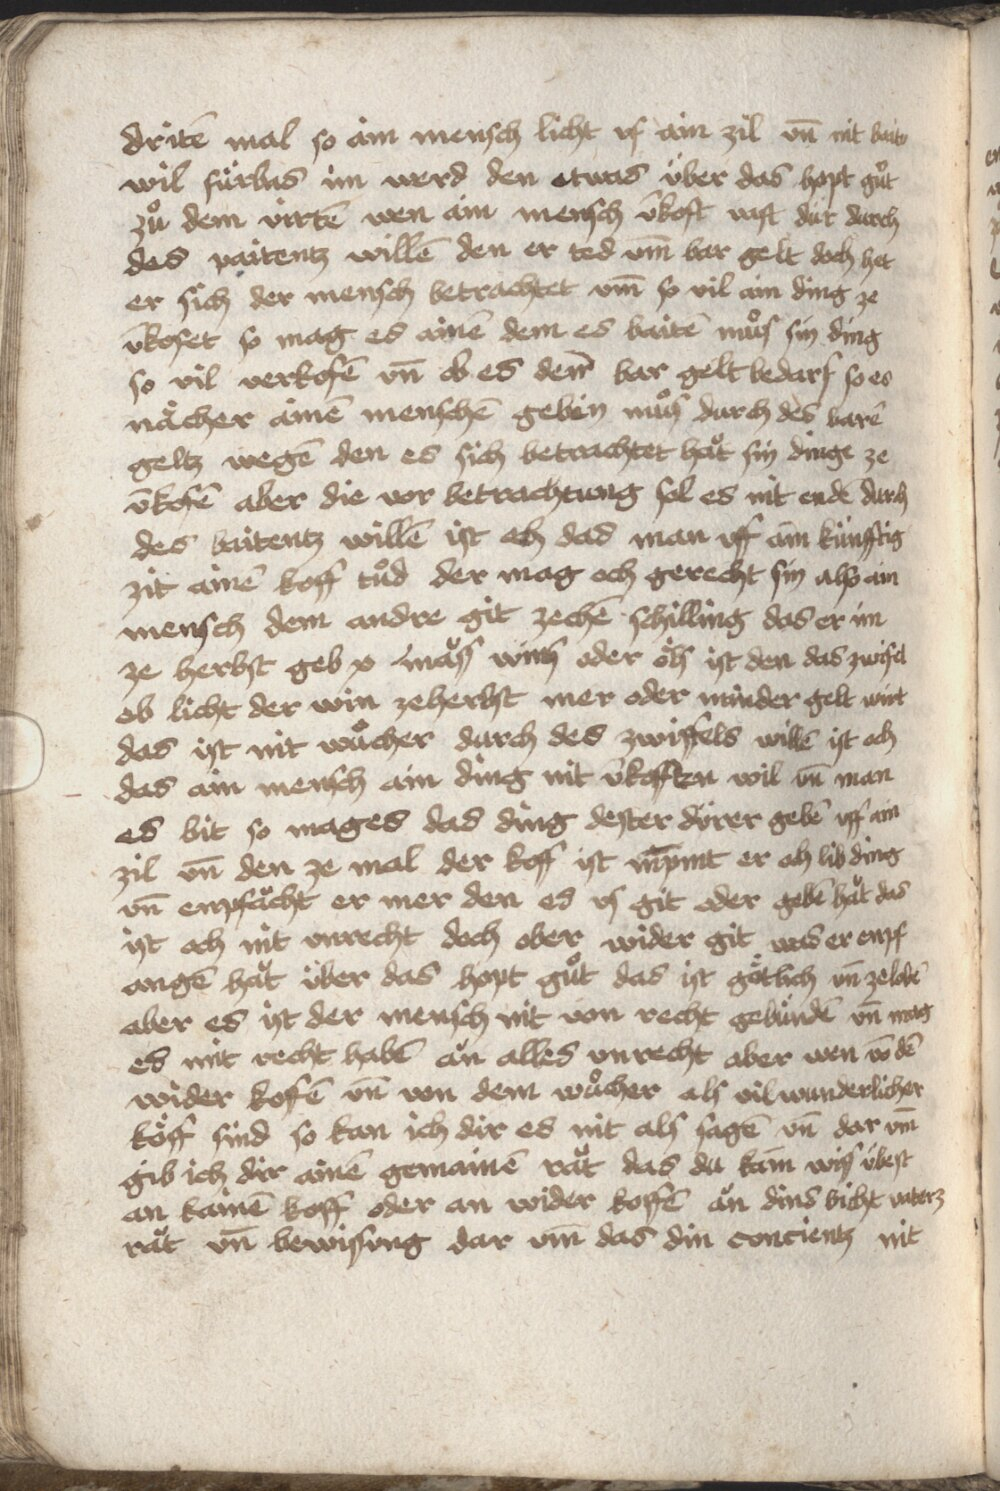 dritē mal so aim mensch licht vf ain zil vn̄ nit baitē
wil fürbas im werd den etwas über das hopt gůt
zů dem virtē wen ain mensch v̄koft vast dür durch
des paitentz willē den er ted vm̄ bar gelt doch het
er sich der mensch betrachtet vm̄ so vil ain ding ze
v̄kofet so mag es ainē dem es baitē můs sin ding
so vil verkofē vn̄ ob es den̄ bar gelt bedarf so es
nächer ainē menschē geben můs durch des barē
geltz wegē den es sich betrachtet hǎt sin dinge ze
v̄kofē aber die vor betrachtung sol es nit endē durch
des baitentz willē ist och das man vff ain künfftig
zit ainē koff tůd der mag och gerecht sin also ain
mensch dem andre git zechē schilling das er im
ze herbst geb x mǎss wins oder öls ist den das zwifel
ob licht der win ze herbst mer oder minder gelt wirt
das ist nit wůcher durch des zwiffels willē ist och
das ain mensch ain ding nit v̄koffen wil vn̄ man
es bit so mag es das ding dester dürer gebē vff ain
zil vn̄ den ze mal der koff ist er och lib ding
vn̄ empfächt er mer den es vs git oder gebē hǎt das
ist och nit vnrecht doch ober wider git was er empf
angē hǎt über das hopt gůt das ist götlich vn̄ ze lobē
aber es ist der mensch nit von recht gebundē vn̄ mag
es mit recht habē ǎn alles vnrecht aber wen vō dē
wider kofē vn̄ von dem wůcher als vil wunderlicher
köff sind so kan ich dir es nit als sagē vn̄ dar vm̄
gib ich dir ainē gemainē rǎt das du kain wis übest
an kainē koff oder an wider koffē ǎn dins bicht vaterz
rǎt vn̄ bewisung dar vm̄ das din concientz nit